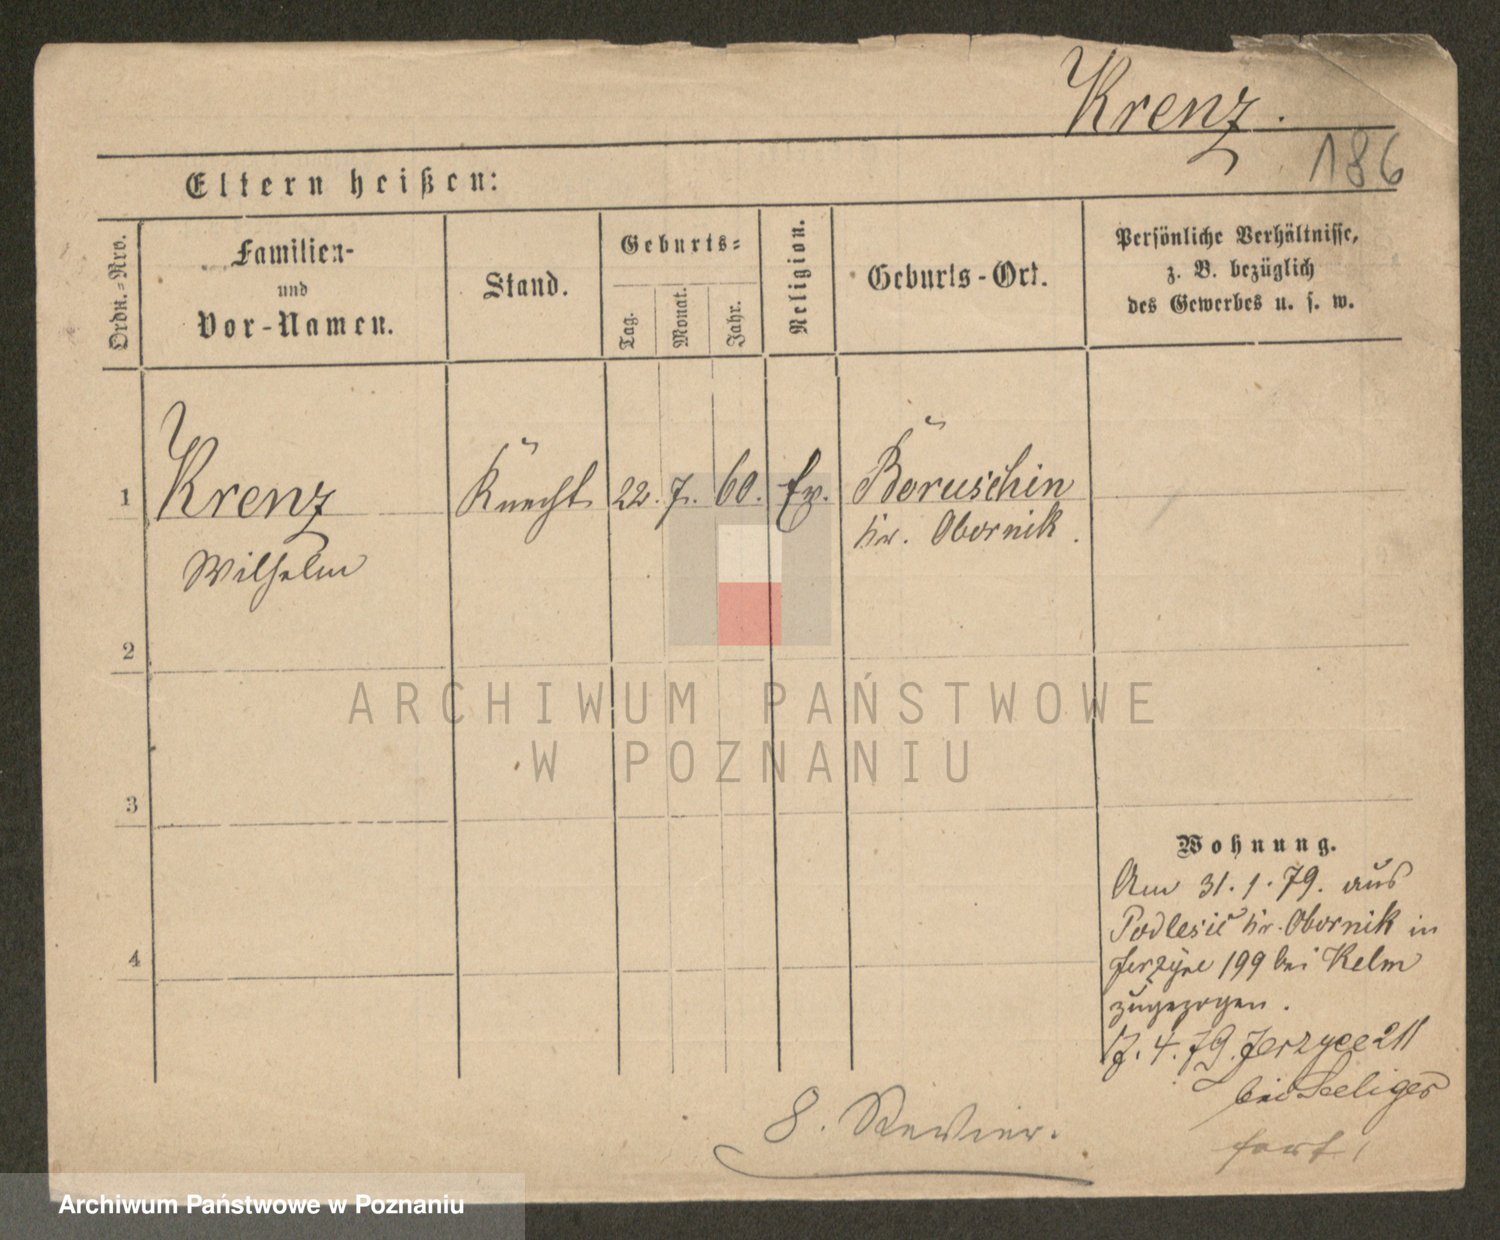 Krenz.
186
Eltern heißen:
Ordn.-Nro.
Familien-
und
Vor-Namen.
Stand.
Geburts-
Tag.
Monat.
Jahr.
Religion.
Geburts-Ort.
Persönliche Verhältnisse,
z. B. bezüglich
des Gewerbes u. s. w.
1 Krenz Knecht 22. 7. 60. Ev. Boruschin
Wilhelm
Kr. Obornik.
2
3
4
Wohnung.
Am 31. 1. 79. aus
Podlesie Kr. Obornik in
Jerzyce 199 bei Kelm
zugezogen.
17. 4. 79. Jerzyce 211
bei Seeliger
fort!
8. Revier.
ARCHIWUM PAŃSTWOWE
W POZNANIU
Archiwum Państwowe w Poznaniu